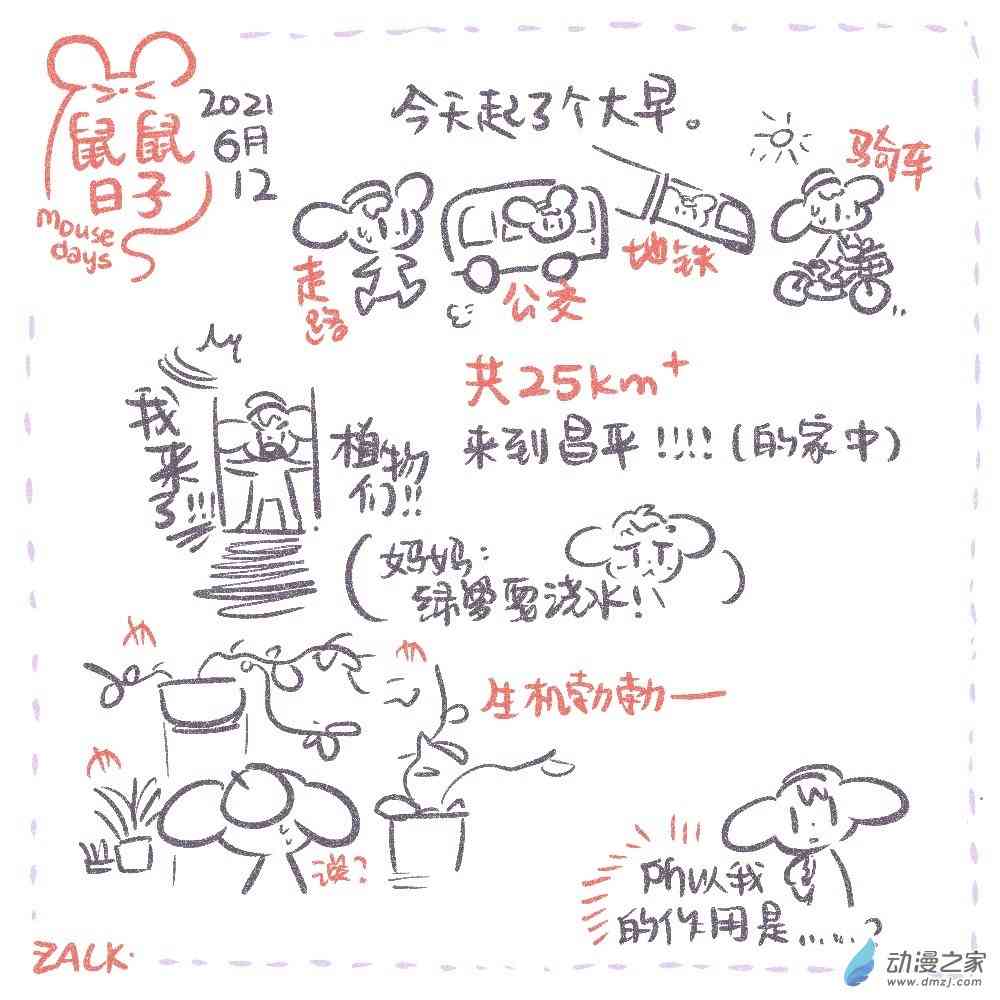 鼠鼠
日子
mouse
days
2021
6月
12
今天起了个大早。
走路
公交
地铁
骑车
共25km+
来到昌平!!!!(的家中)
我来了!!!
植物们!!
(妈妈:
绿萝要浇水!)
生机勃勃一
诶?
所以我
的作用是......?
ZALK.
动漫之家
www.dmzj.com